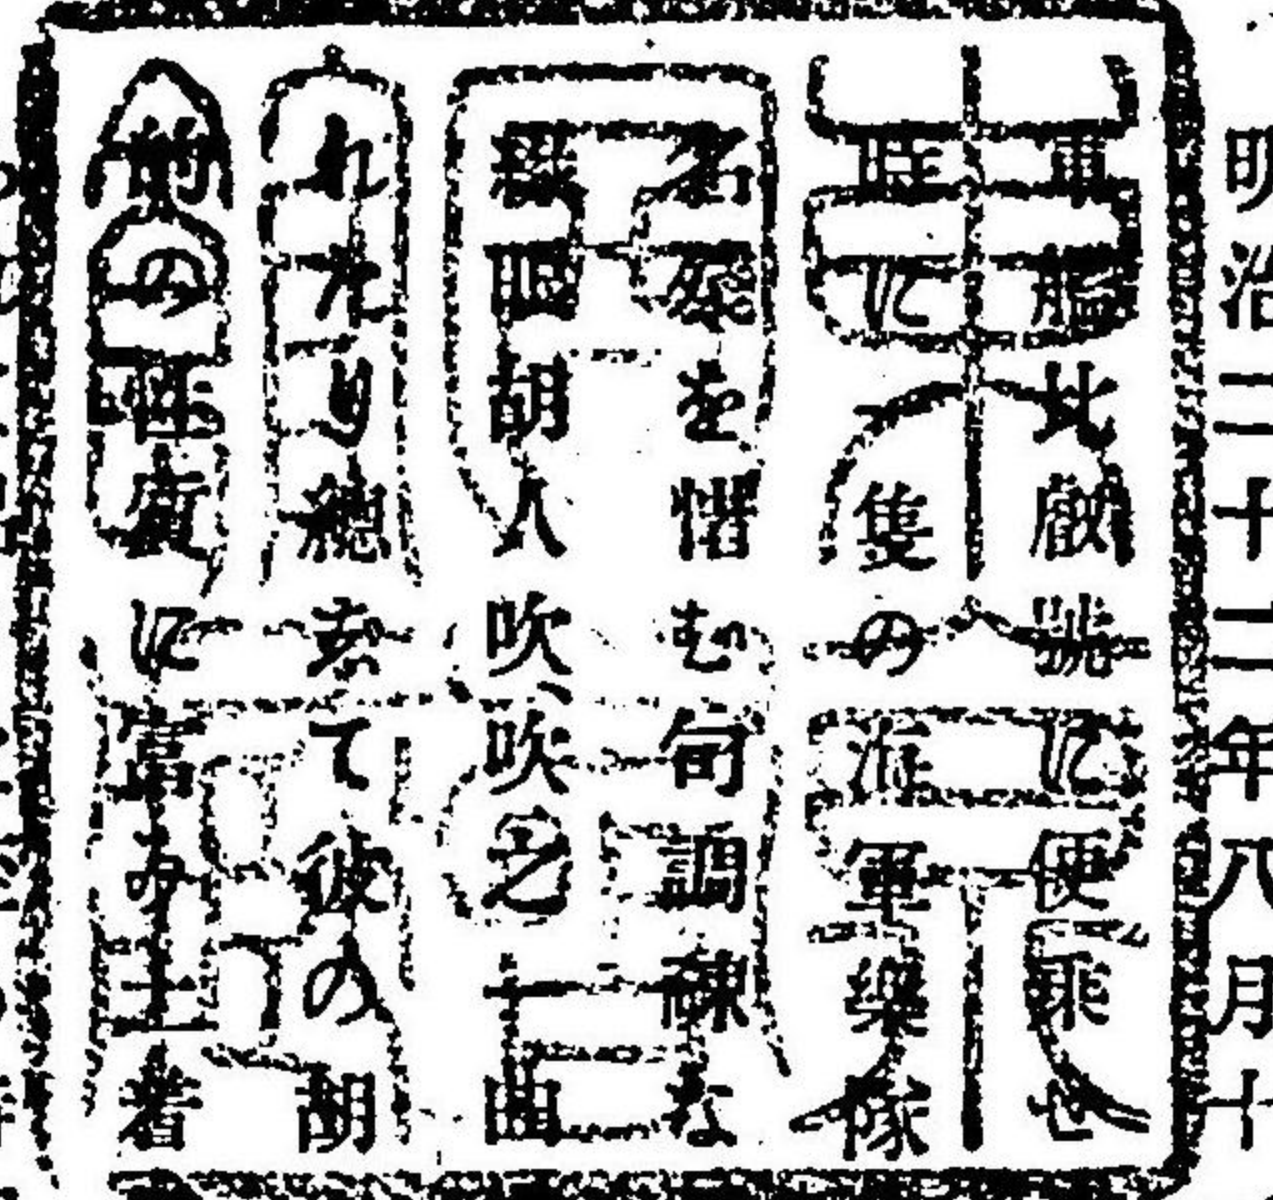 明治二十二年八月十
軍艦比叡號に便乘せ
時に一隻の海軍樂隊
名殘を惜む句調練な
緑眼胡人吹、吹之一曲
れたり總志て彼の胡
前の性質に富み土着